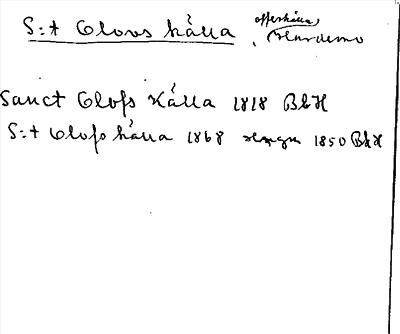 S:t Olovs källa, offerkälla, Hardemo
Sanct Olofs Källa 1818 BLH
S:t Olofs källa 1868 1850 BLH